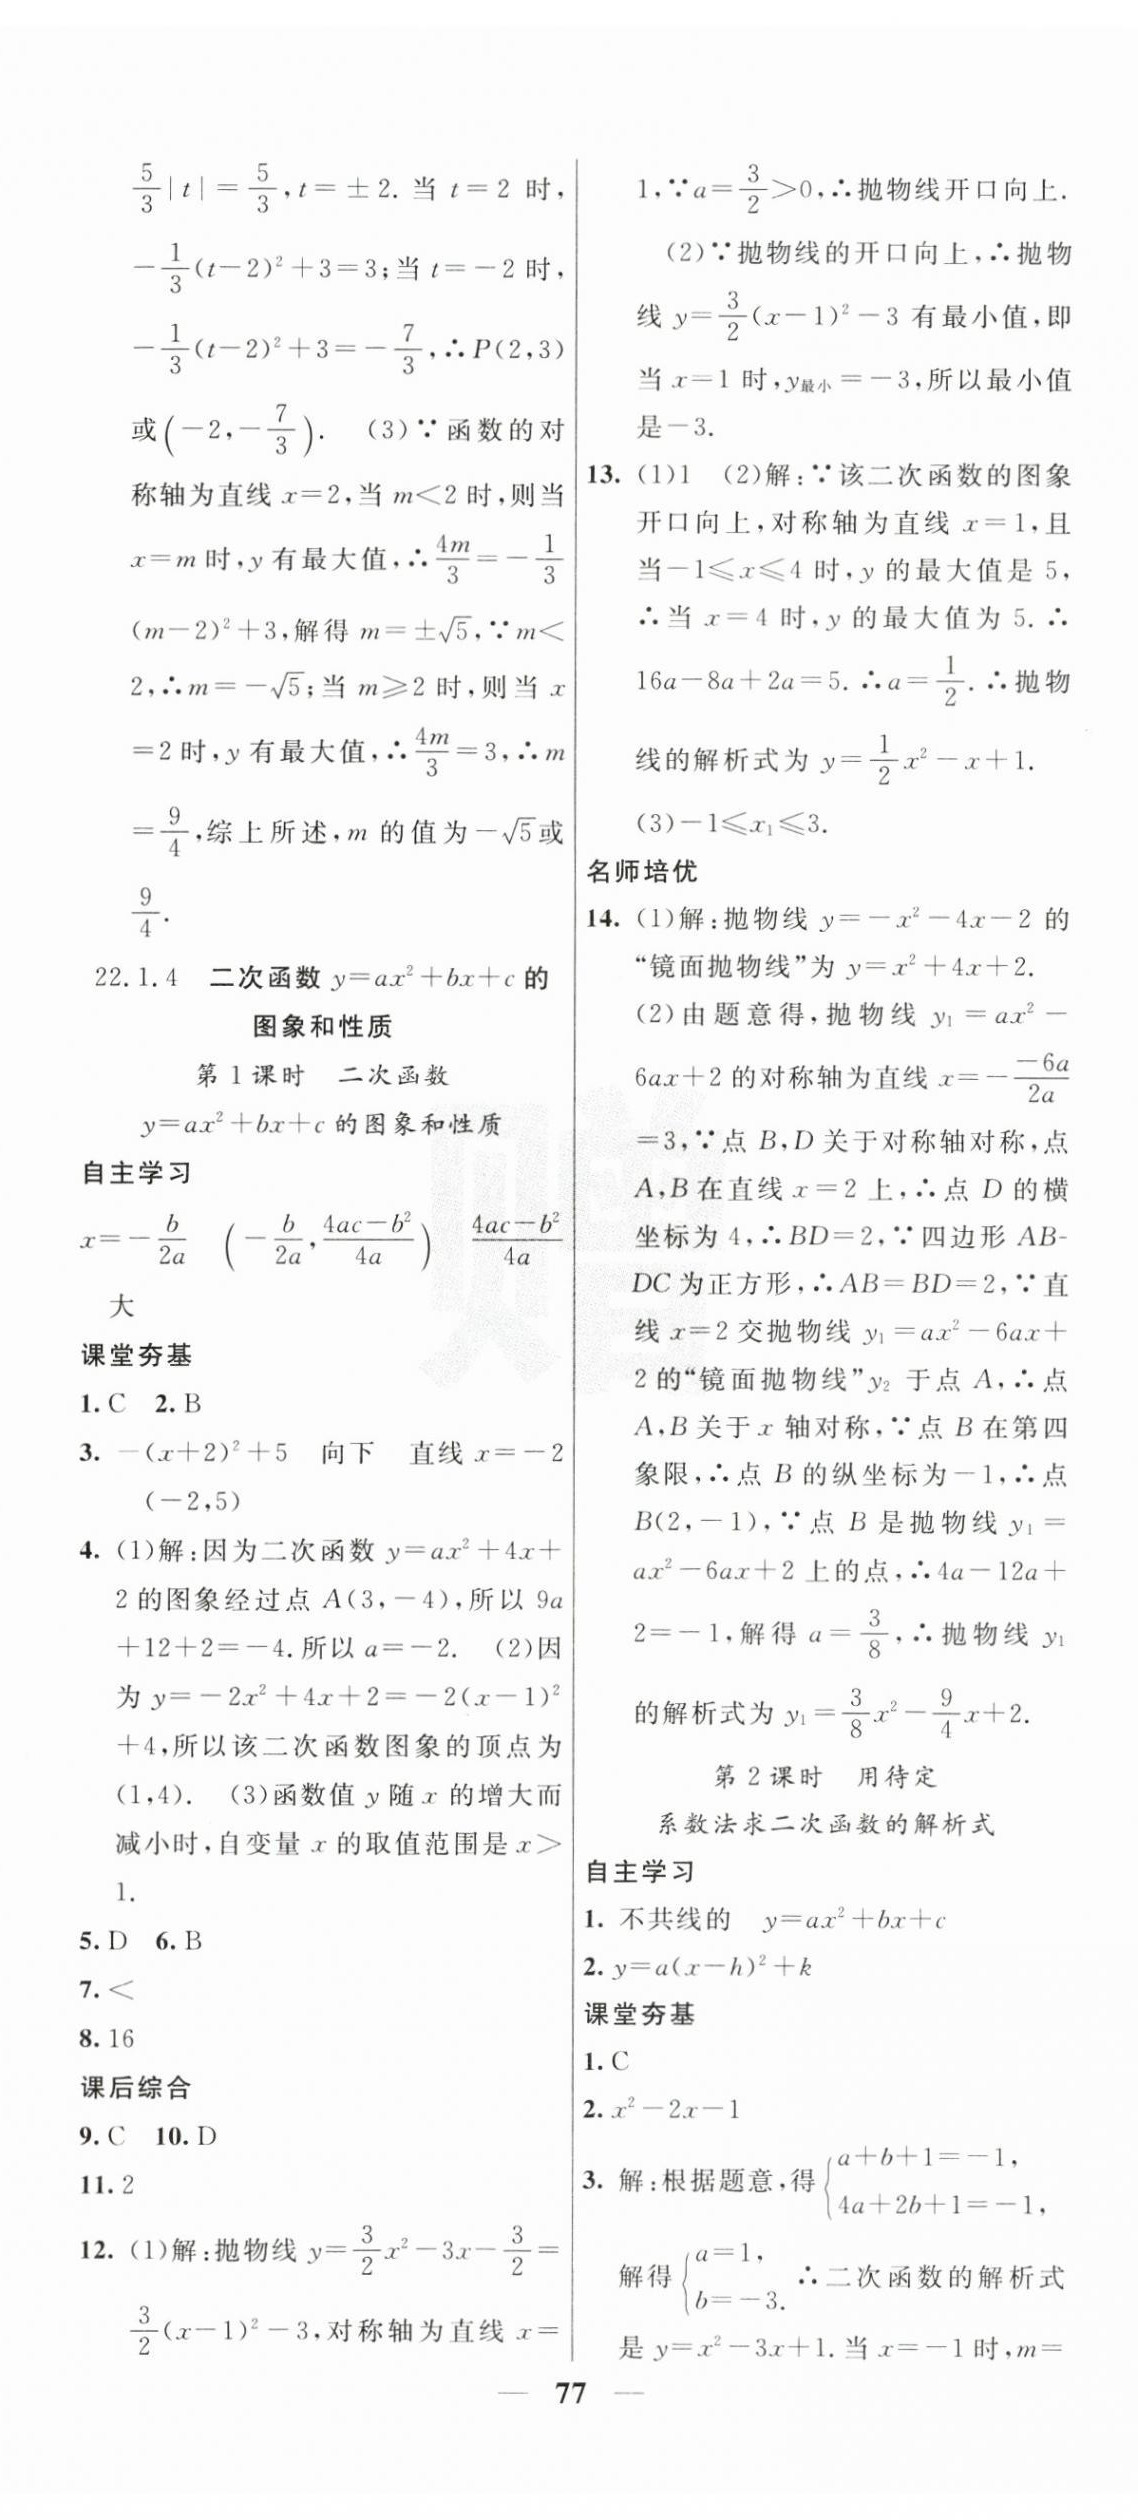 5/3|t|=5/3,t=±2.当 t=2 时,
-1/3(t-2)²+3=3;当 t=-2 时,
-1/3(t-2)²+3=-7/3,∴P(2,3)
或(-2,-7/3). (3)∵函数的对
称轴为直线 x=2,当 m<2 时,则当
x=m 时,y 有最大值,∴4m/3=-1/3
(m-2)²+3,解得 m=±√5,∵m<
2,∴m=-√5;当 m≥2 时,则当 x
=2 时,y 有最大值,∴4m/3=3,∴m
=9/4,综上所述,m 的值为-√5或
9/4.
22.1.4 二次函数 y=ax²+bx+c 的
图象和性质
第 1 课时 二次函数
y=ax²+bx+c 的图象和性质
自主学习
x=-b/2a (-b/2a,(4ac-b²)/4a) (4ac-b²)/4a
大
课堂夯基
1.C 2.B
3. -(x+2)²+5 向下 直线 x=-2
(-2,5)
4. (1)解:因为二次函数 y=ax²+4x+
2 的图象经过点 A(3,-4),所以 9a
+12+2=-4.所以 a=-2. (2)因
为 y=-2x²+4x+2=-2(x-1)²
+4,所以该二次函数图象的顶点为
(1,4). (3)函数值 y 随 x 的增大而
减小时,自变量 x 的取值范围是 x>
1.
5.D 6.B
7.<
8.16
课后综合
9.C 10.D
11.2
12. (1)解:抛物线 y=3/2x²-3x-3/2=
3/2(x-1)²-3,对称轴为直线 x=
1,∵a=3/2>0,∴抛物线开口向上.
(2)∵抛物线的开口向上,∴抛物
线 y=3/2(x-1)²-3 有最小值,即
当 x=1 时,y最小=-3,所以最小值
是-3.
13. (1)1 (2)解:∵该二次函数的图象
开口向上,对称轴为直线 x=1,且
当-1≤x≤4 时,y 的最大值是 5,
∴当 x=4 时,y 的最大值为 5.∴
16a-8a+2a=5.∴a=1/2.∴抛物
线的解析式为 y=1/2x²-x+1.
(3)-1≤x₁≤3.
名师培优
14. (1)解:抛物线 y=-x²-4x-2 的
“镜面抛物线”为 y=x²+4x+2.
(2)由题意得,抛物线 y₁=ax²-
6ax+2 的对称轴为直线 x=-(-6a)/2a
=3,∵点 B,D 关于对称轴对称,点
A,B 在直线 x=2 上,∴点 D 的横
坐标为 4,∴BD=2,∵四边形 AB-
DC 为正方形,∴AB=BD=2,∵直
线 x=2 交抛物线 y₁=ax²-6ax+
2 的“镜面抛物线”y₂ 于点 A,∴点
A,B 关于 x 轴对称,∵点 B 在第四
象限,∴点 B 的纵坐标为-1,∴点
B(2,-1),∵点 B 是抛物线 y₁=
ax²-6ax+2 上的点,∴4a-12a+
2=-1,解得 a=3/8,∴抛物线 y₁
的解析式为 y₁=3/8x²-9/4x+2.
第 2 课时 用待定
系数法求二次函数的解析式
自主学习
1. 不共线的 y=ax²+bx+c
2. y=a(x-h)²+k
课堂夯基
1.C
2. x²-2x-1
3. 解:根据题意,得{a+b+1=-1,
4a+2b+1=-1,
解得{a=1,
b=-3. ∴二次函数的解析式
是 y=x²-3x+1.当 x=-1 时,m=
— 77 —